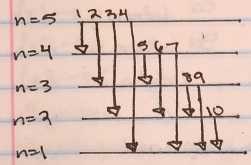 n=5 1 2 3 4
n=4 5 6 7
n=3 8 9
n=2 10
n=1